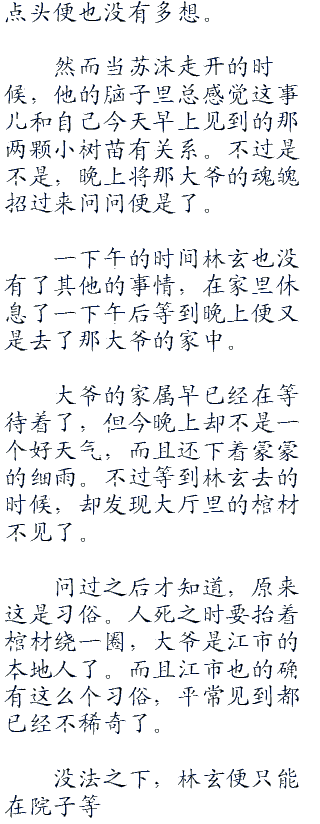 点头便也没有多想。
然而当苏沫走开的时
候，他的脑子里总感觉这事
儿和自己今天早上见到的那
两颗小树苗有关系。不过是
不是，晚上将那大爷的魂魄
招过来问问便是了。
一下午的时间林玄也没
有了其他的事情，在家里休
息了一下午后等到晚上便又
是去了那大爷的家中。
大爷的家属早已经在等
待着了，但今晚上却不是一
个好天气，而且还下着蒙蒙
的细雨。不过等到林玄去的
时候，却发现大厅里的棺材
不见了。
问过之后才知道，原来
这是习俗。人死之时要抬着
棺材绕一圈，大爷是江市的
本地人了。而且江市也的确
有这么个习俗，平常见到都
已经不稀奇了。
没法之下，林玄便只能
在院子等